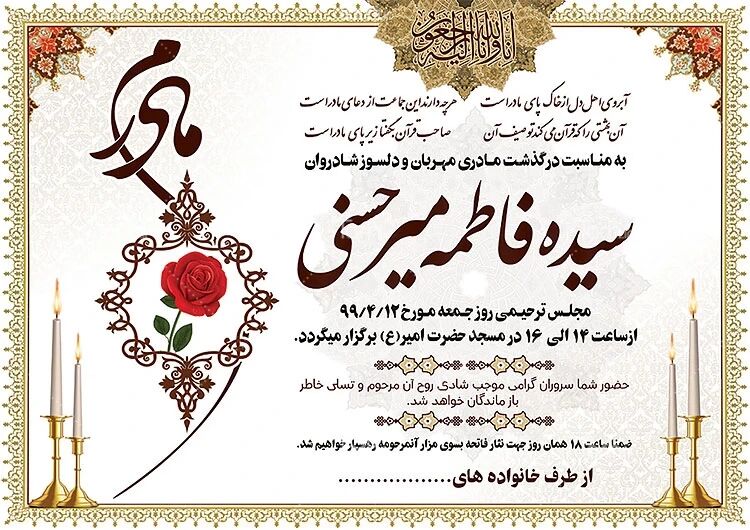 انا لله و انا الیه راجعون
مادرم
آبروی اهل دل از خاک پای مادر است هر چه دارند این جماعت از دعای مادر است
آن بهشتی را که قرآن می کند توصیف آن صاحب قرآن بگفتا زیر پای مادر است
به مناسبت درگذشت مادری مهربان و دلسوز شادروان
سیده فاطمه میرحسنی
مجلس ترحیمی روز جمعه مورخ ۹۹/۴/۱۲
از ساعت ۱۴ الی ۱۶ در مسجد حضرت امیر(ع) برگزار میگردد.
حضور شما سروران گرامی موجب شادی روح آن مرحوم و تسلی خاطر
بازماندگان خواهد شد.
ضمنا ساعت ۱۸ همان روز جهت نثار فاتحه بسوی مزار آنمرحومه رهسپار خواهیم شد.
از طرف خانواده های......................